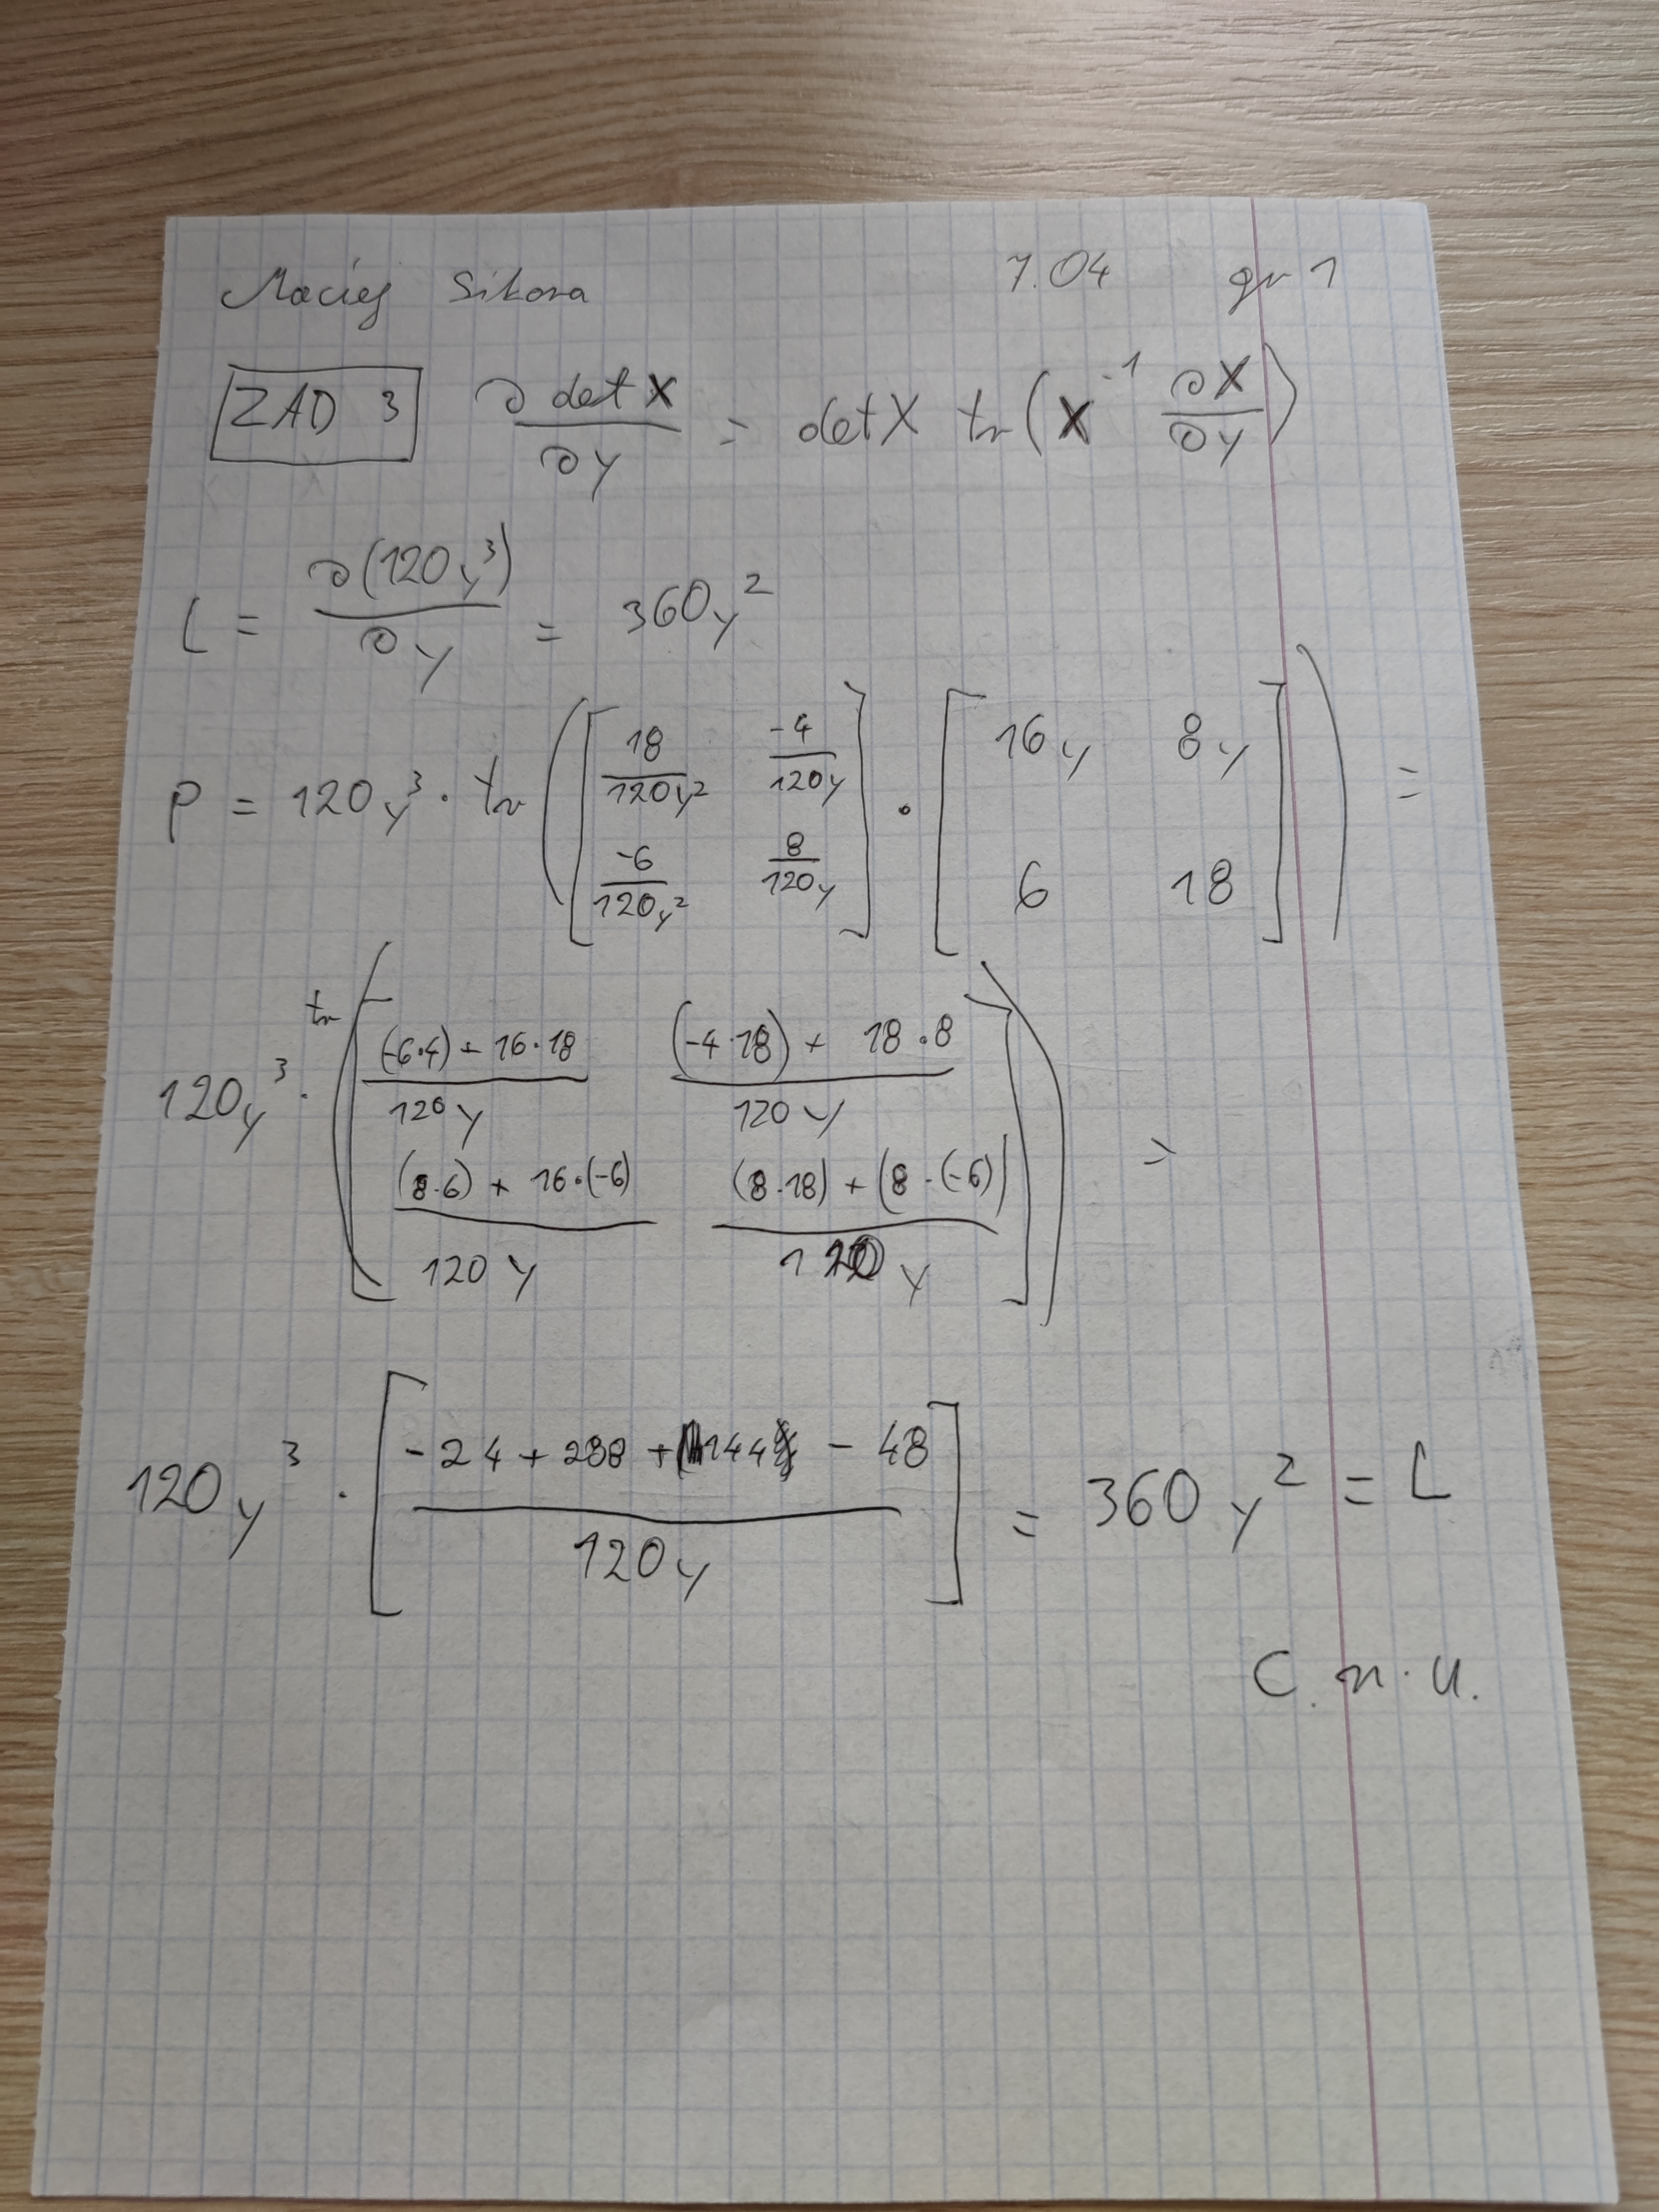 Maciej Sikora 7.04 gr 1
ZAD 3 ∂ det X / ∂y = det X tr(X⁻¹ ∂X/∂y)
L = ∂(120y³) / ∂y = 360y²
P = 120y³ · tr([18/120y² -4/120y; -6/120y² 8/120y] · [16y 8y; 6 18]) =
120y³ · tr([((-6·4) + 16·18)/120y ((-4·18) + 18·8)/120y; ((8·6) + 16·(-6))/120y ((8·18) + (8·(-6)))/120y]) =
120y³ · [(-24 + 288 + 144 - 48)/120y] = 360y² = L
C.n.u.